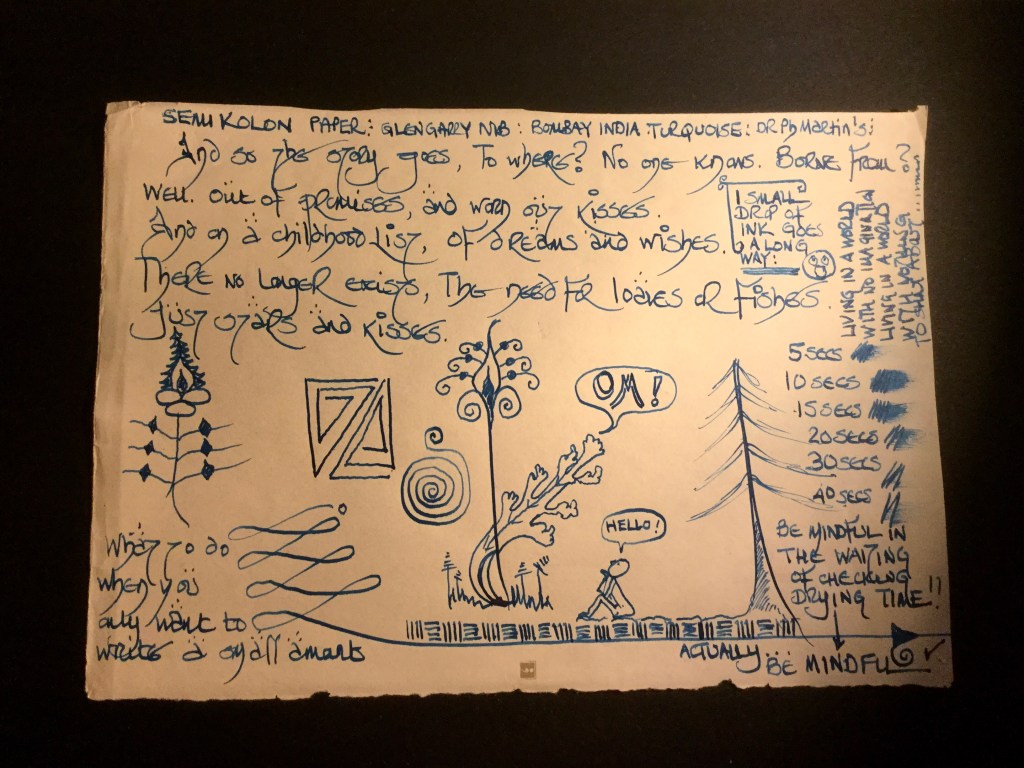 SEMI KOLON PAPER: GLENGARRY NIB: BOMBAY INDIA TURQUOISE: DR Ph MARTIN'S:
And so the story goes, To where? No one knows. Borne From?
Well. Out of promises, and worn out kisses.
And on a childhood list, of dreams and wishes.
There no longer exists, The need for loaves or fishes.
Just stars and kisses.
1 SMALL
DROP OF
INK GOES
A LONG
WAY:
LIVING IN A WORLD
WITH NO IMAGINATION
LIVING IN A WORLD
WITH NOTHING
TO SHOUT ABOUT
5 SECS
10 SECS
15 SECS
20 SECS
30 SECS
40 SECS
OM!
HELLO!
BE MINDFUL IN
THE WAITING
OF CHECKING
DRYING TIME!!
What to do
when you
only want to
write a small amount
ACTUALLY BE MINDFUL